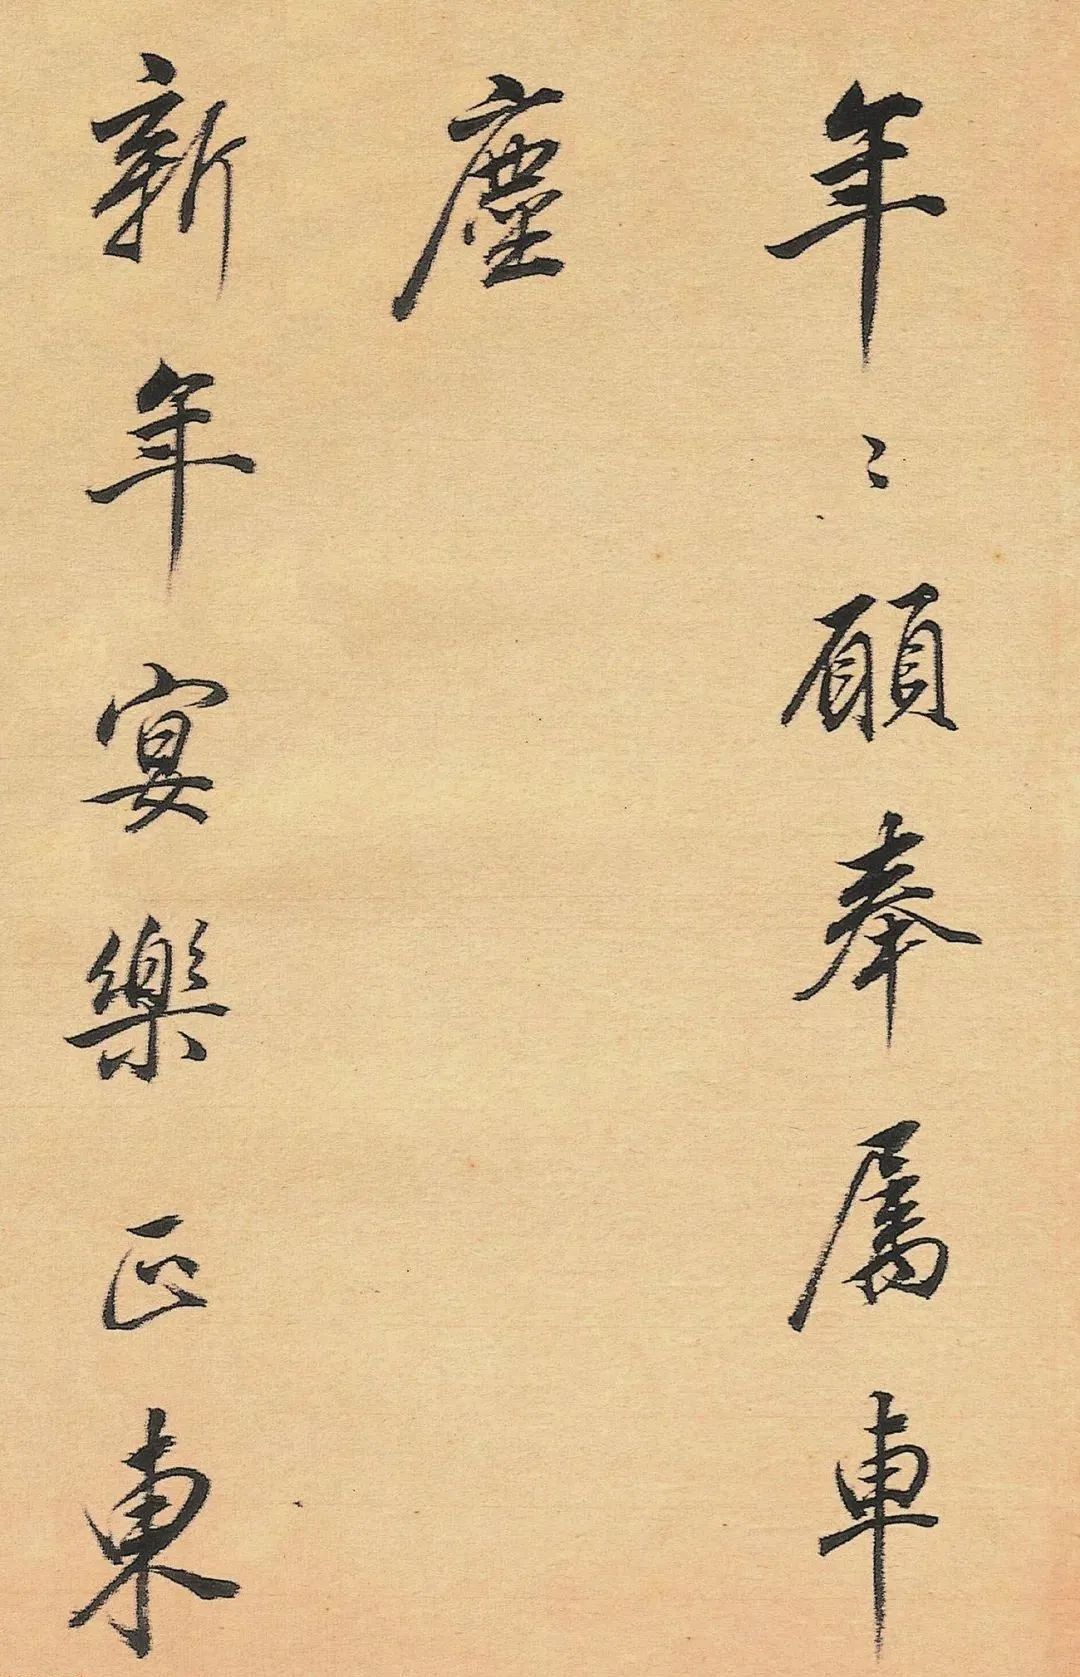 年〻願奉屬車
塵
新年宴樂正東